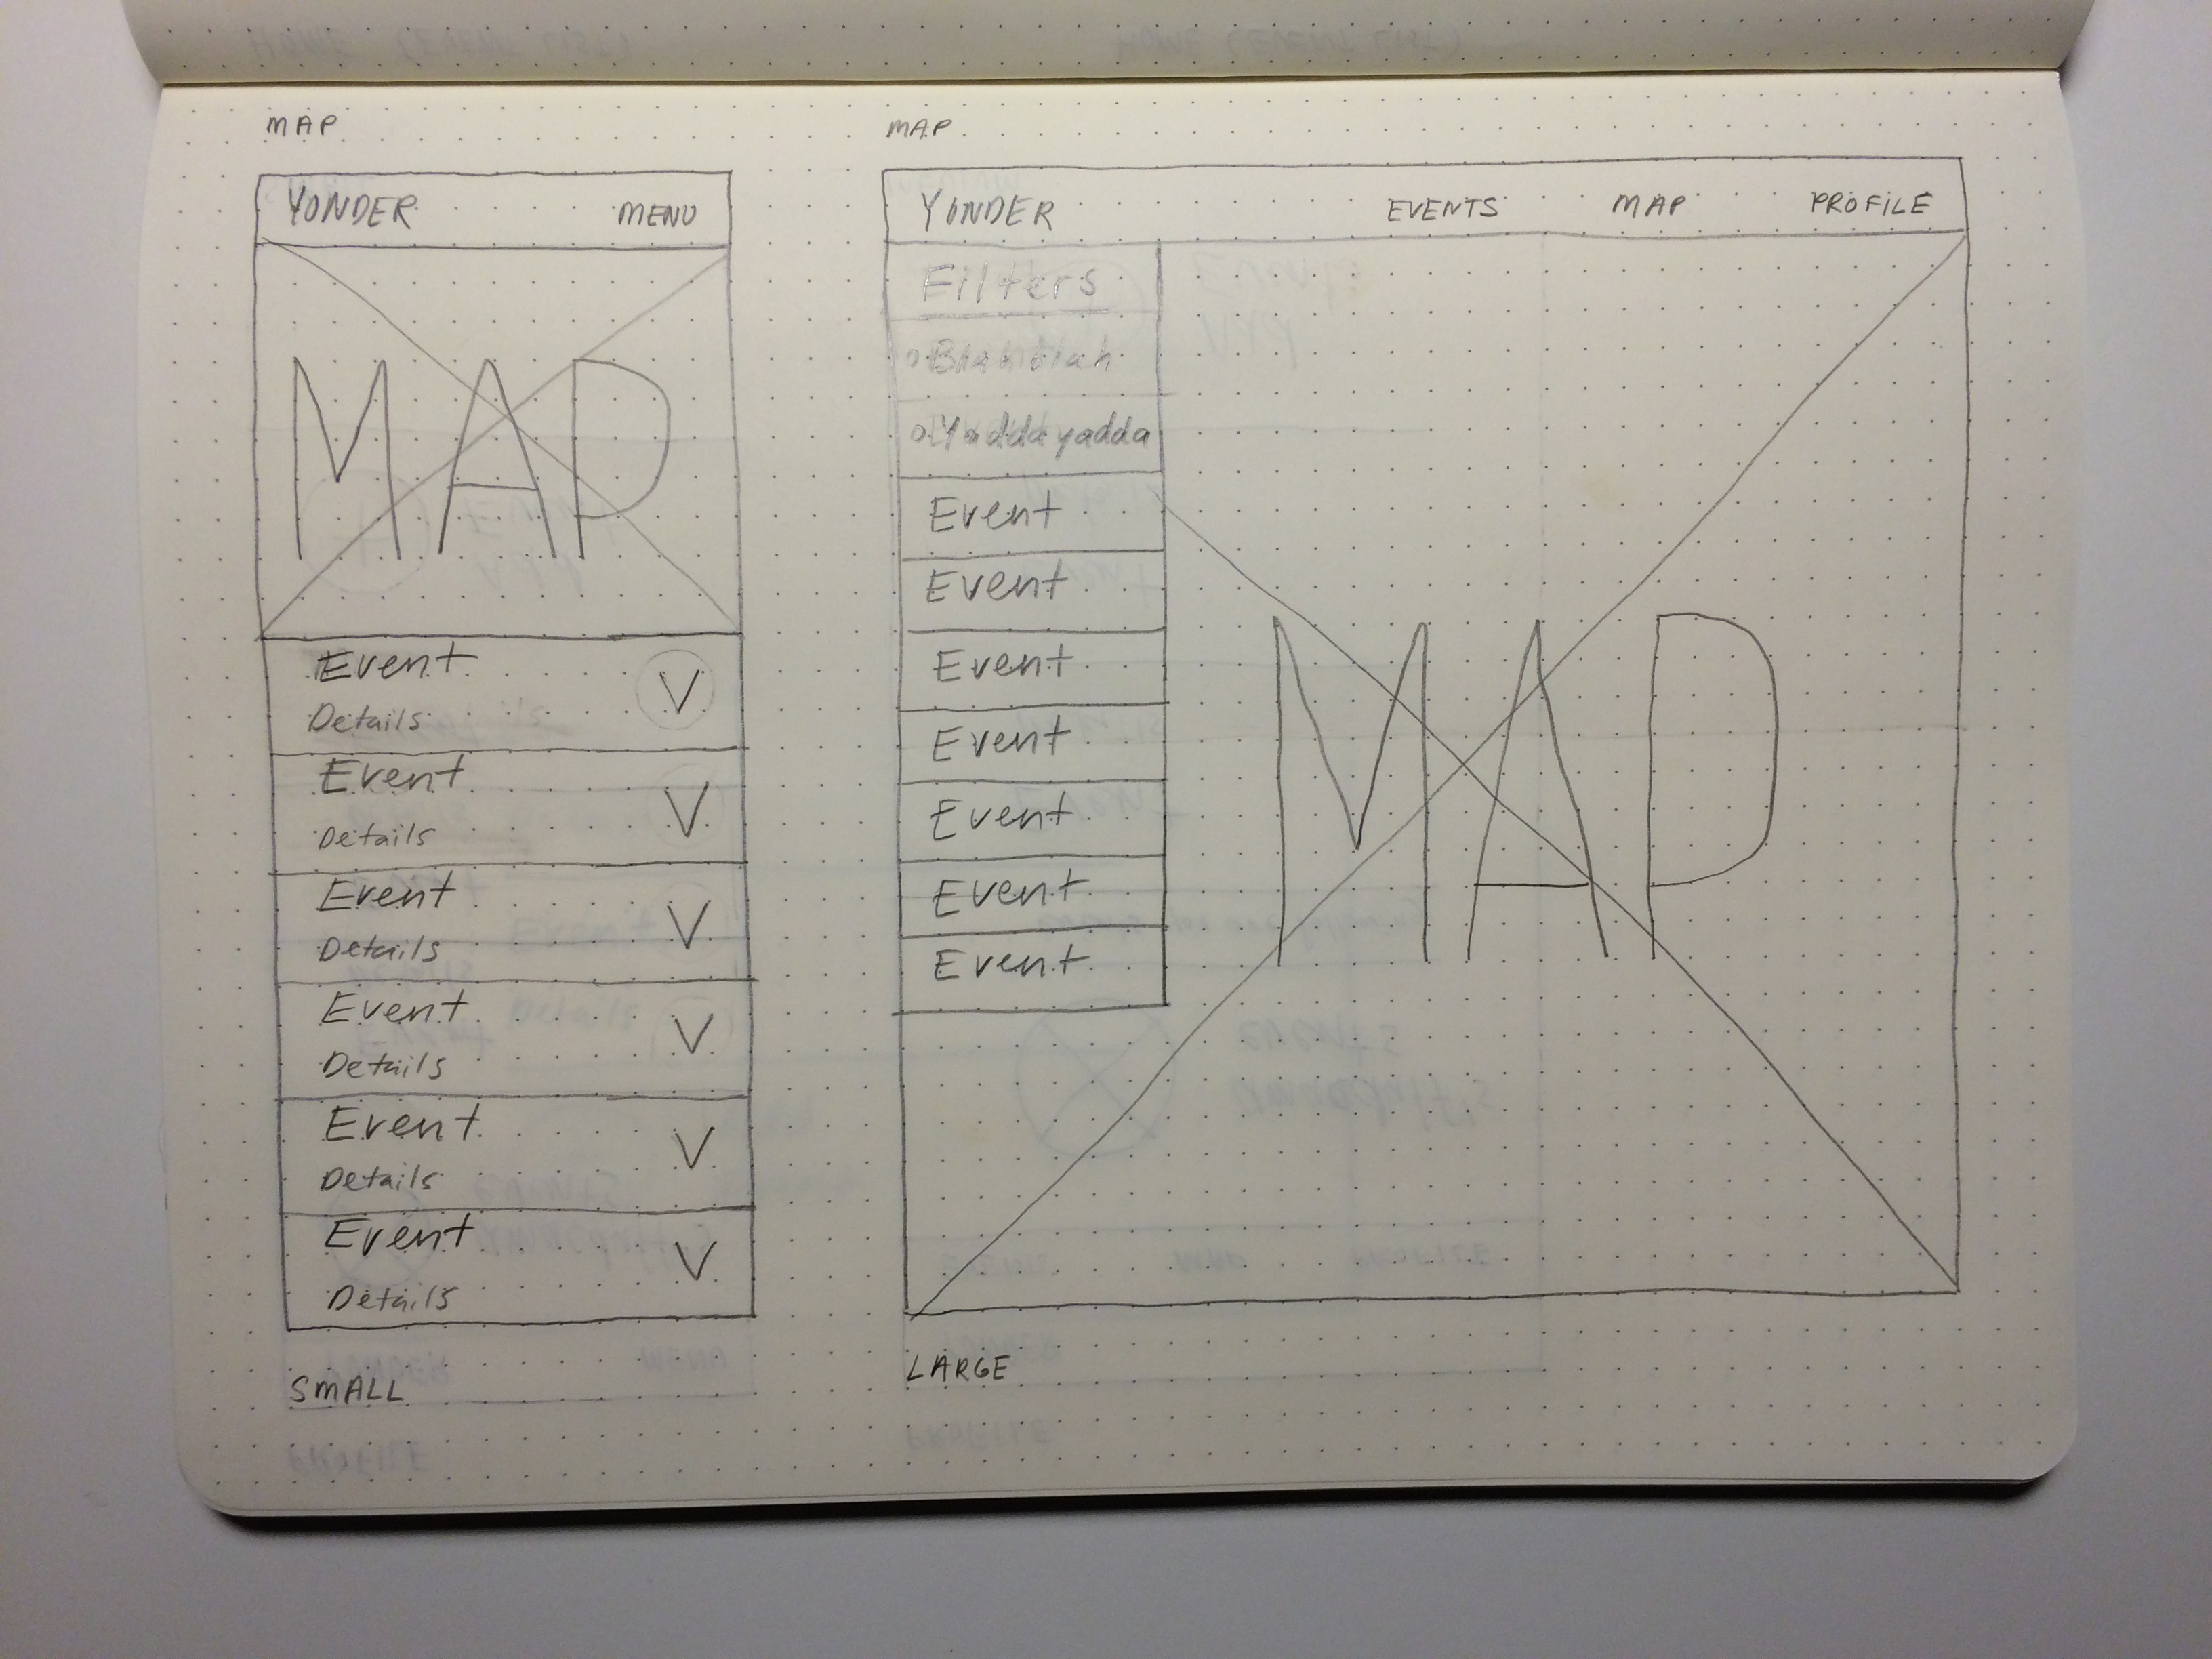 MAP
YONDER MENU
MAP
Event
Details V
Event
Details V
Event
Details V
Event
Details V
Event
Details V
Event
Details V
SMALL
MAP
YONDER EVENTS MAP PROFILE
Filters
Blah blah
Yadda yadda
Event
Event
Event
Event
Event
Event
Event
MAP
LARGE